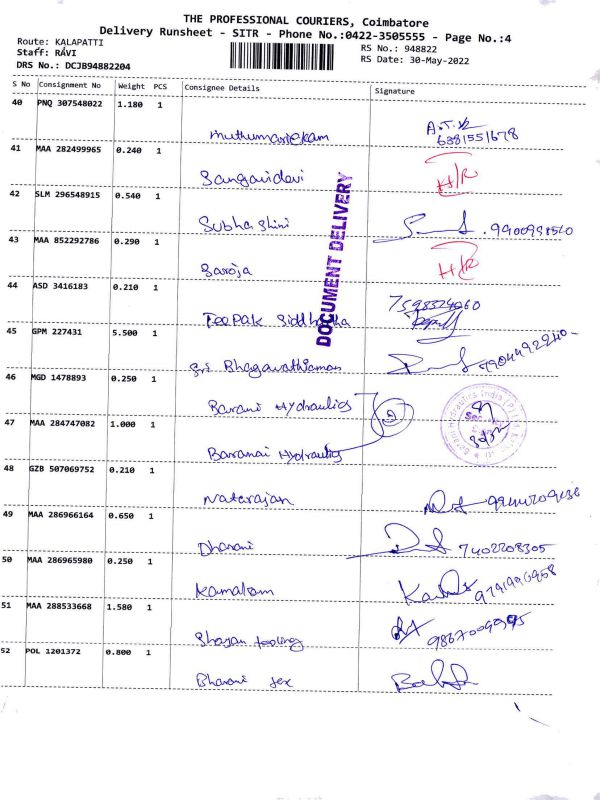 THE PROFESSIONAL COURIERS, Coimbatore
Delivery Runsheet - SITR - Phone No.:0422-3505555 - Page No.:4
Route: KALAPATTI
Staff: RAVI
DRS No.: DCJB94882204
RS No.: 948822
RS Date: 30-May-2022
S No Consignment No Weight PCS Consignee Details Signature
40 PNQ 307548022 1.180 1
muthumariekam A.T.
6381551678
41 MAA 282499965 0.240 1
Sangavidevi H/R
42 SLM 296548915 0.540 1
Subhashini
43 MAA 852292786 0.290 1
Saroja H/R
DOCUMENT DELIVERY
44 ASD 3416183 0.210 1
7598324060
Teepak Siddhartha
45 GPM 227431 5.500 1
Sri Bhagavathiamman
46 MGD 1478893 0.250 1
Barani Hydraulics
Barani Hydraulics India (P)
47 MAA 284747082 1.000 1
Baranai Hydraulics
48 GZB 507069752 0.210 1
Natarajan
49 MAA 286966164 0.650 1
Dharani 7402208305
50 MAA 286965980 0.250 1
Kamalam
51 MAA 288533668 1.580 1
Shagan tooling
52 POL 1201372 0.800 1
Bharani Jex